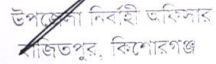 উপজেলা নির্বাহী অফিসার
বাজিতপুর, কিশোরগঞ্জ